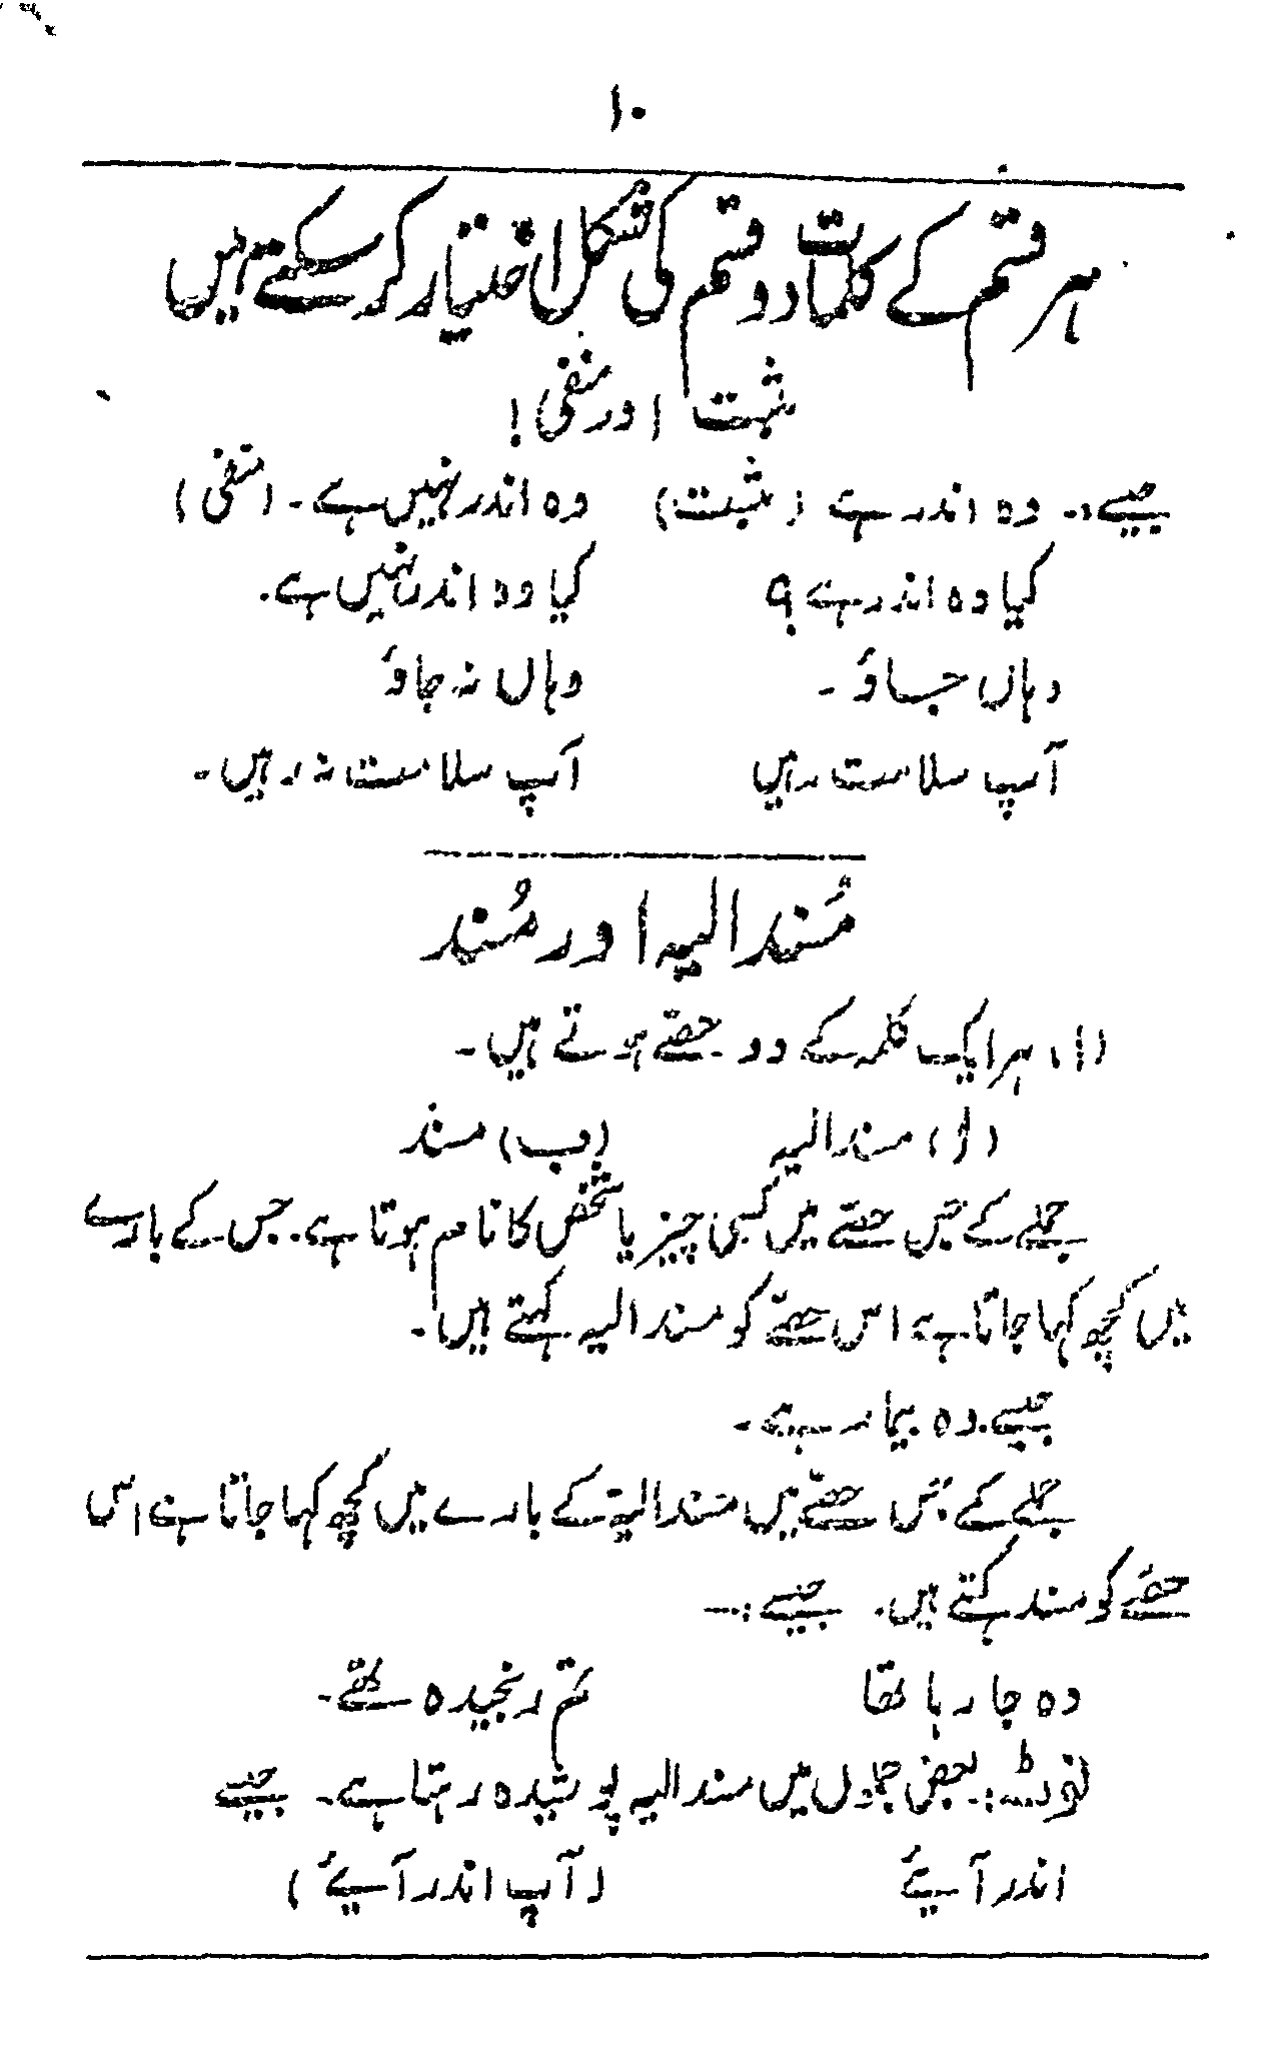 ۱۰
ہر قسم کے کلمات دو قسم کی شکل اختیار کر سکتے ہیں
مثبت اور منفی!
جیسے:۔ وہ اندر ہے (مثبت) وہ اندر نہیں ہے۔ (منفی)
کیا وہ اندر ہے؟ کیا وہ اندر نہیں ہے۔
وہاں جاؤ۔ وہاں نہ جاؤ
آپ سلامت رہیں آپ سلامت نہ رہیں۔
مُسند الیہ اور مُسند
(۱) ہر ایک کلمہ کے دو حصّے ہوتے ہیں۔
(ا) مسند الیہ (ب) مسند
جملے کے جس حصّے میں کسی چیز یا شخص کا نام ہوتا ہے۔ جس کے بارے
میں کچھ کہا جاتا ہے، اس حصّے کو مسند الیہ کہتے ہیں۔
جیسے۔ وہ بیمار ہے۔
جملے کے جس حصّے میں مسند الیہ کے بارے میں کچھ کہا جاتا ہے اس
حصّے کو مسند کہتے ہیں۔ جیسے:۔
وہ جا رہا تھا تم رنجیدہ تھے۔
نوٹ:۔ بعض جملوں میں مسند الیہ پوشیدہ رہتا ہے۔ جیسے
اندر آیئے (آپ اندر آیئے)